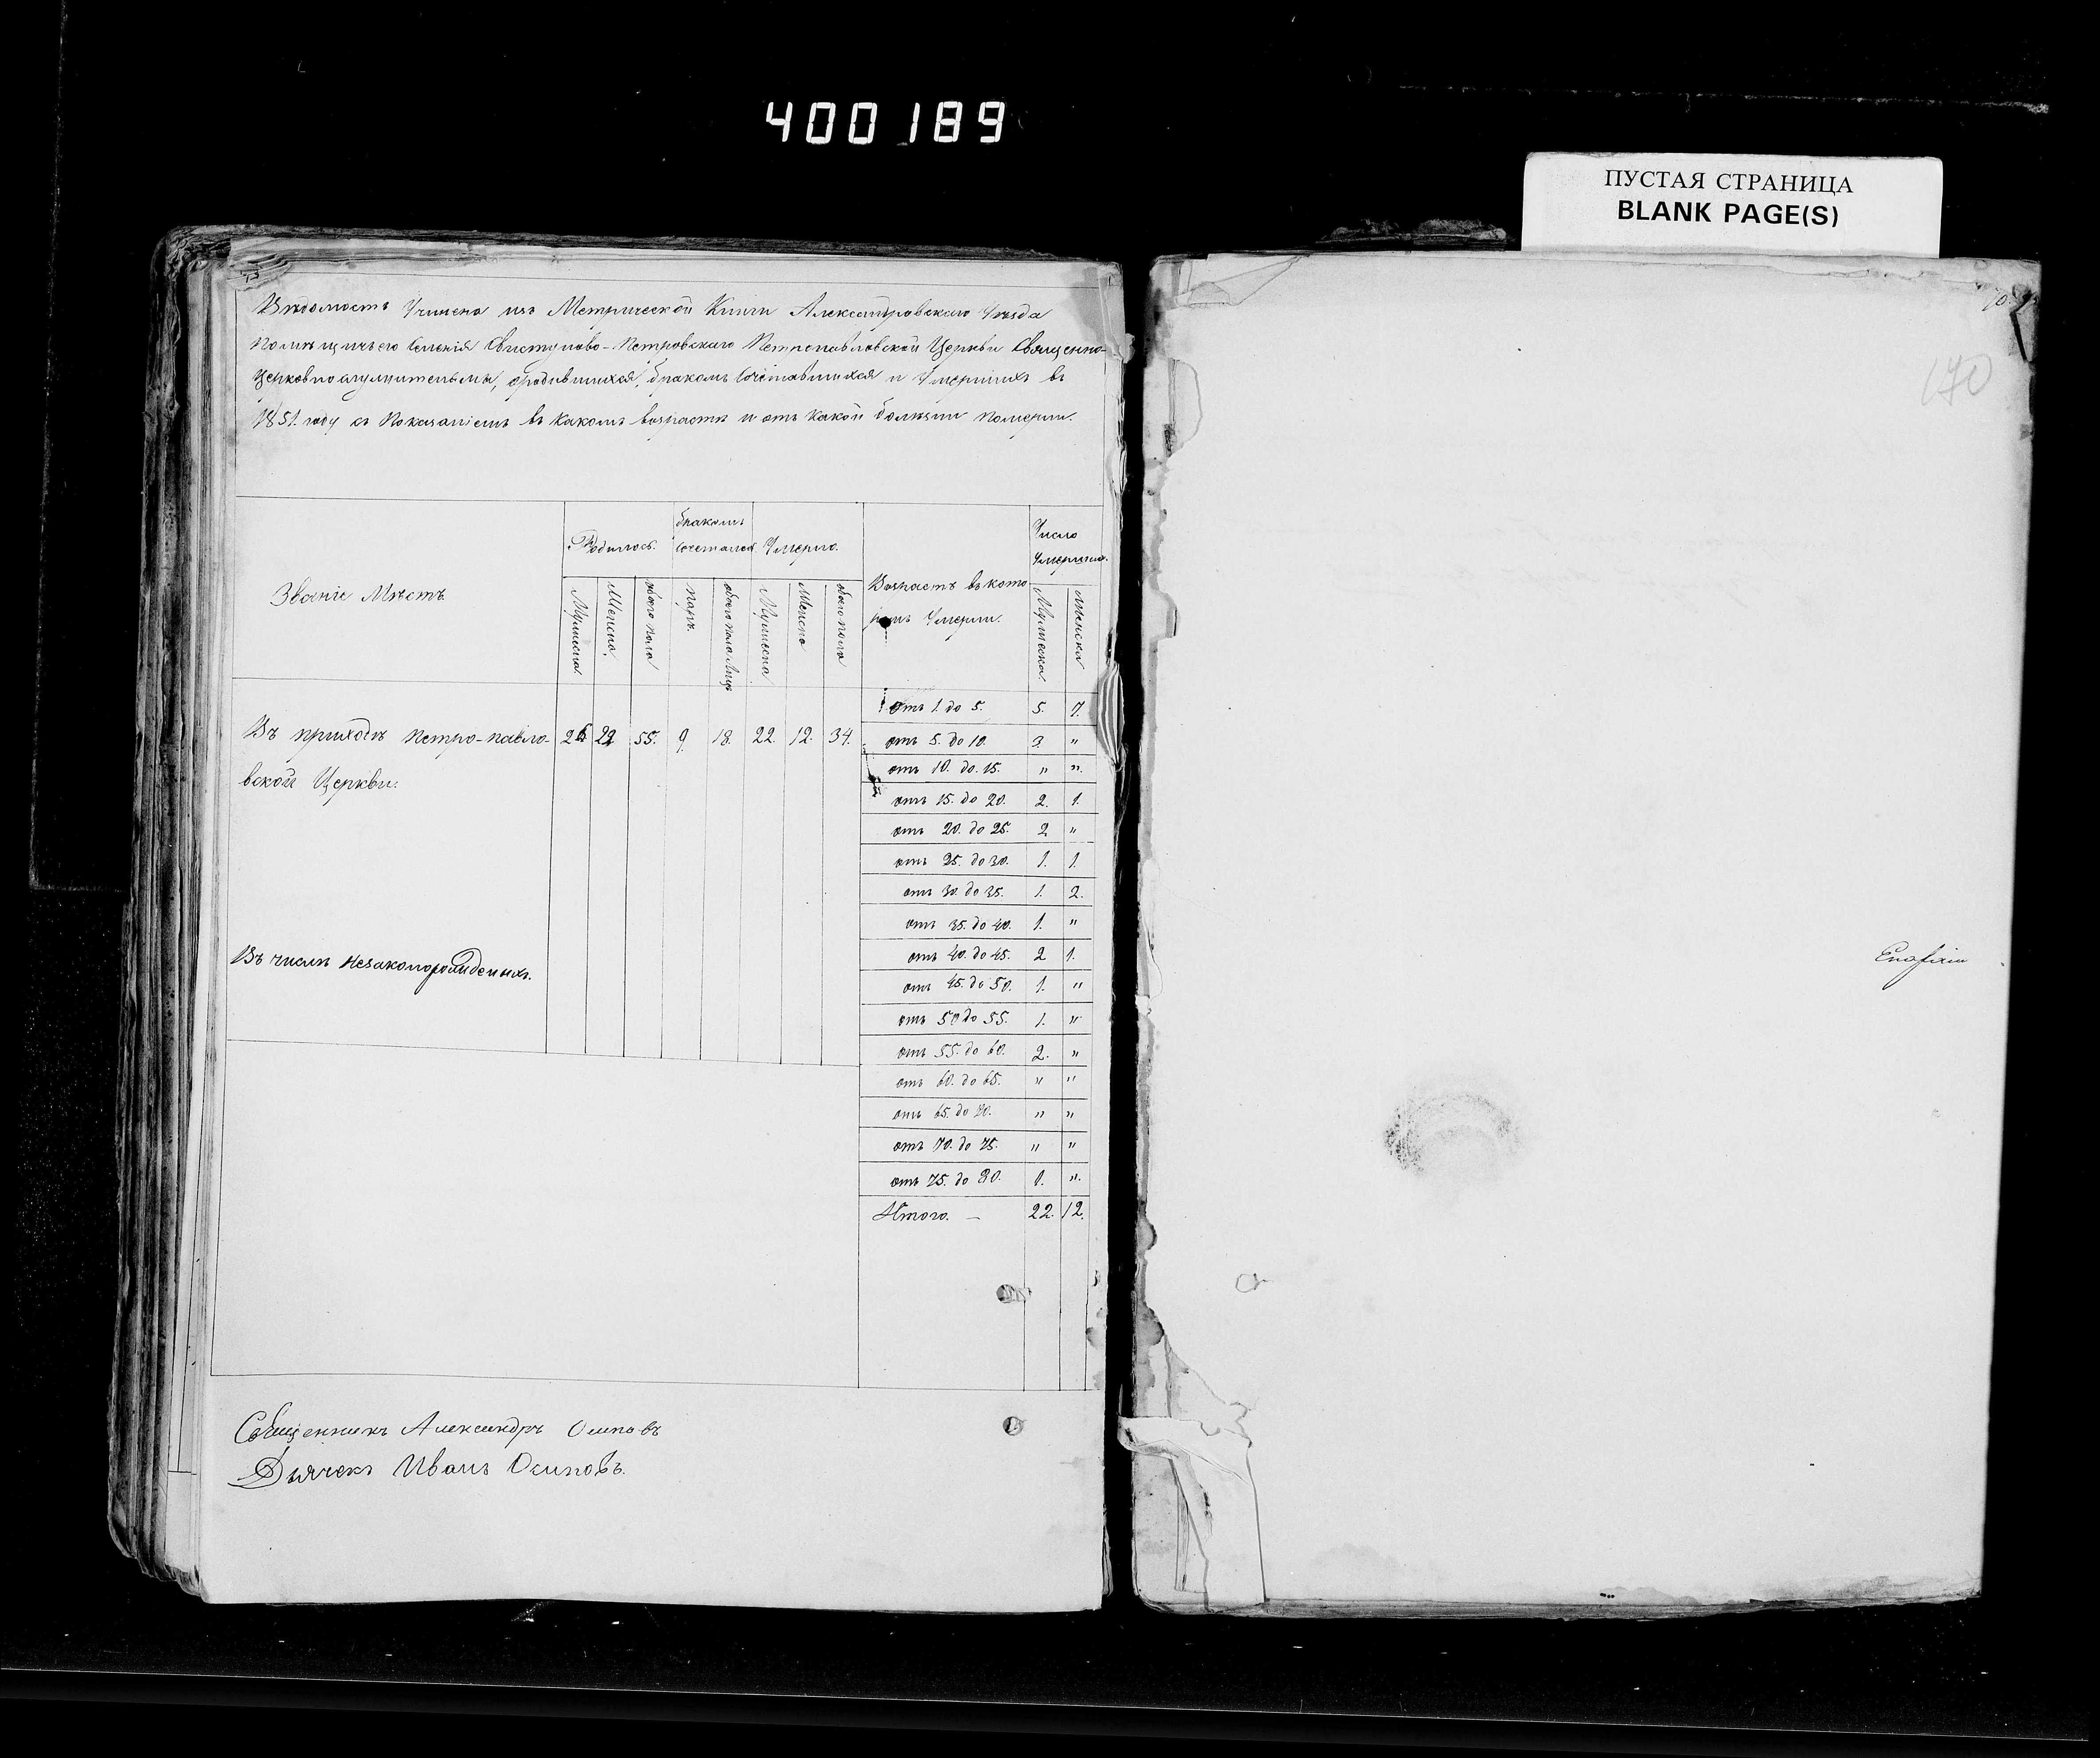 400189
ПУСТАЯ СТРАНИЦА
BLANK PAGE(S)
Вѣдомость Учинена изъ Метрической Книги Александровскаго Уѣзда
Свистуново-Петровскаго Петропавловской Церкви Священно-
Церковнослужительми, о родившихся, бракомъ Сочетавшихся и Умершихъ въ
1851. году съ Показаніемъ въ какомъ возрастѣ и отъ какой болѣзни померли.
Званіе Мѣстъ
Родилось.
бракомъ
сочеталось
Умерло.
Возрастъ въ кото
ромъ Умерли.
Число
Умершихъ.
Мужеска
Женска
обоего пола
паръ.
обоего пола лицъ
Мужеска
Женска
обоего пола
Мужеска
женска
Въ приходѣ Петро-павло- 55. 9. 18. 22. 12. 34.
вской Церкви.
Въ числѣ незаконорожденныхъ.
отъ 1. до 5. 5. 7.
отъ 5. до 10. 3. "
отъ 10. до. 15. " ".
отъ 15. до 20. 2. 1.
отъ 20. до 25. 2 "
отъ 25. до 30. 1. 1.
отъ 30. до 35. 1. 2.
отъ 35. до 40. 1. "
отъ 40. до 45. 2 1.
отъ 45. до 50. 1. "
отъ 50 до 55. 1. "
отъ 55. до 60. 2. "
отъ 60. до 65. " "
отъ 65. до 70. " "
отъ 70. до 75. " "
отъ 75. до 80. 1. ".
Итого. — 22. 12.
Священникъ Александръ Осиповъ
Дьячекъ Иванъ Осиповъ.
170